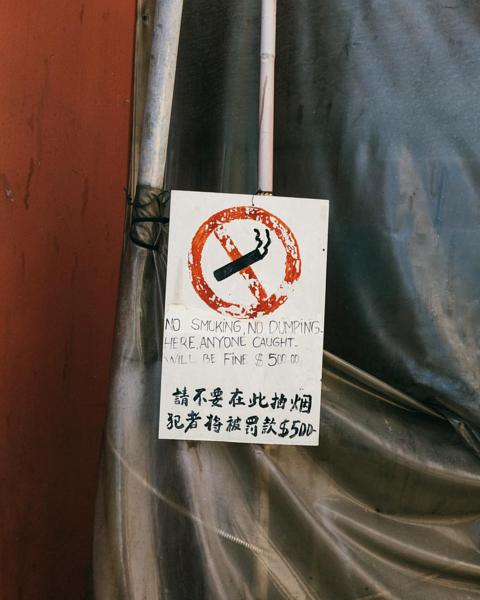 NO SMOKING, NO DUMPING.
HERE, ANYONE CAUGHT-
WILL BE FINE $500.00.
請不要在此抽烟
犯者将被罰款$500-